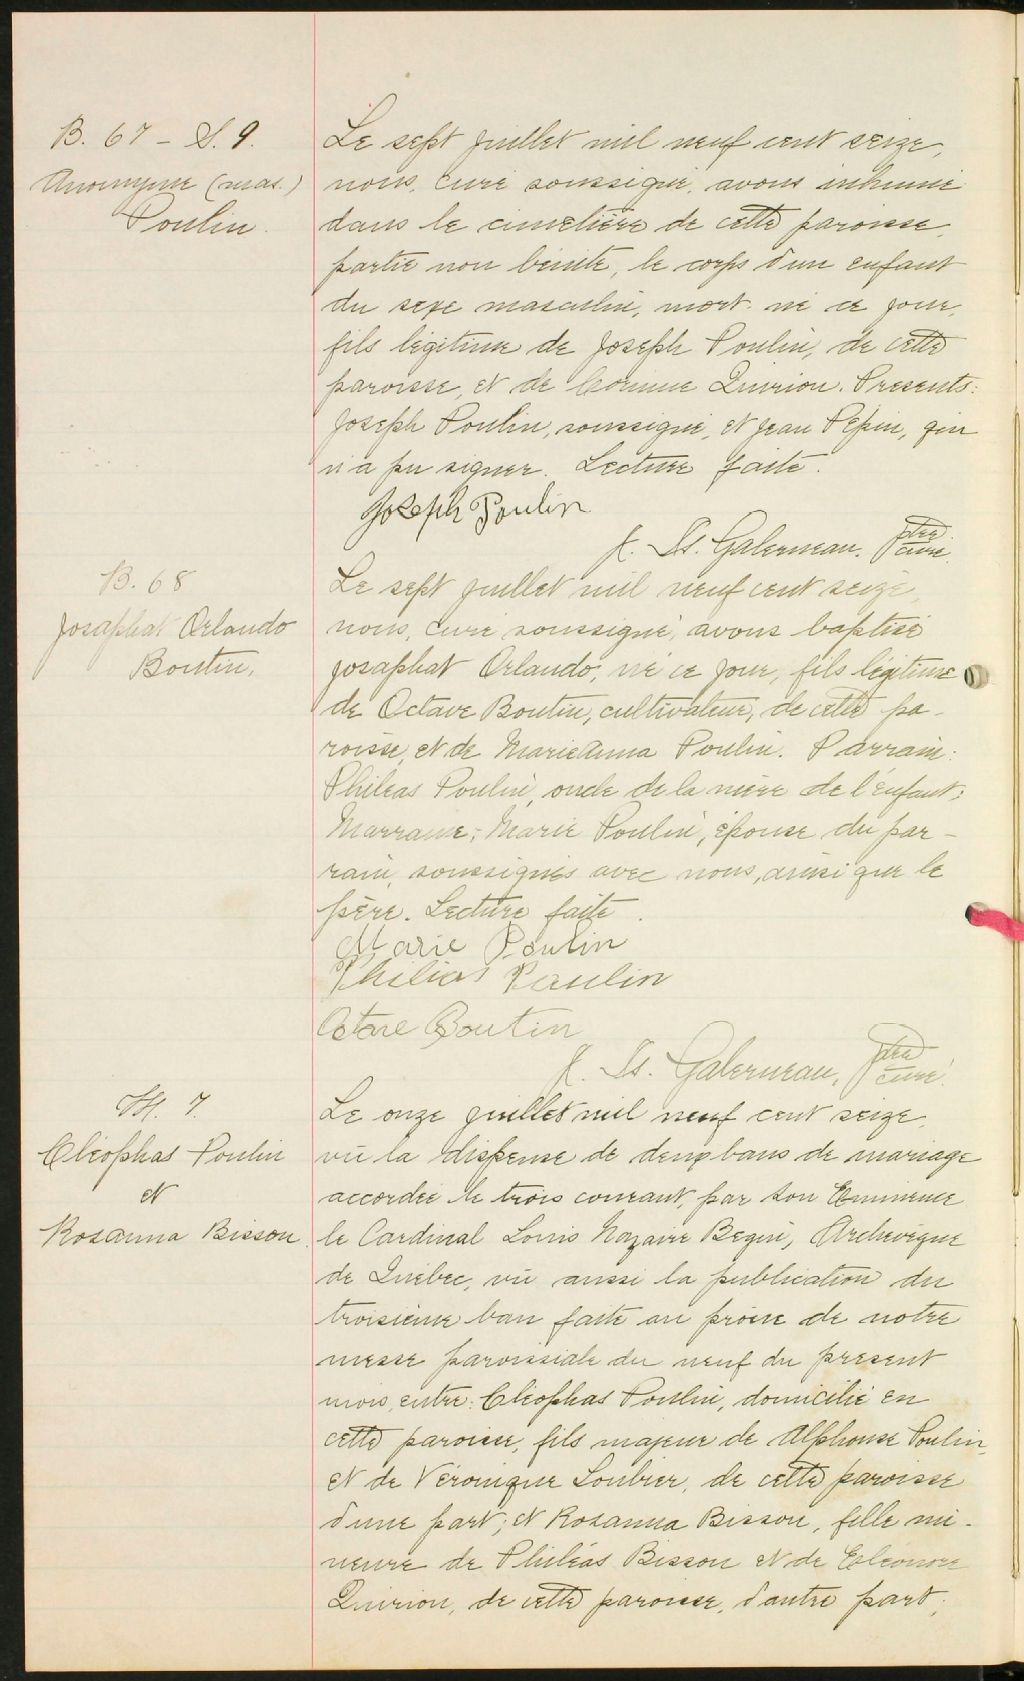 B. 67 - S. 9.
Anonyme (mas.)
Poulin.
Le sept juillet mil neuf cent seize,
nous, curé soussigné, avons inhumé
dans le cimetière de cette paroisse,
partie non bénite, le corps d'un enfant
du sexe masculin, mort-né ce jour,
fils légitime de Joseph Poulin, de cette
paroisse, et de Corinne Quirion. Présents:
Joseph Poulin, soussigné, et Jean Pépin, qui
n'a pu signer. Lecture faite.
Joseph Poulin
J. Ls. Galerneau, ptre
curé.
B. 68
Josaphat Orlando
Boutin.
Le sept juillet mil neuf cent seize,
nous, curé soussigné, avons baptisé
Josaphat Orlando, né ce jour, fils légitime
de Octave Boutin, cultivateur, de cette pa-
roisse, et de Marieanna Poulin. Parrain:
Philéas Poulin, oncle de la mère de l'enfant;
Marraine; Marie Poulin, épouse du par-
rain, soussignés avec nous, ainsi que le
père. Lecture faite.
Marie Poulin
Philias Paulin
Octave Boutin
J. Ls. Galerneau, ptre
curé.
M. 7.
Cléophas Poulin
et
Rosanna Bisson
Le onze juillet mil neuf cent seize,
vu la dispense de deux bans de mariage
accordée le trois courant, par Son Eminence
le Cardinal Louis Nazaire Bégin, Archevêque
de Québec, vu aussi la publication du
troisième ban faite au prône de notre
messe paroissiale du neuf du présent
mois, entre: Cléophas Poulin, domicilié en
cette paroisse, fils majeur de Alphonse Poulin,
et de Véronique Loubier, de cette paroisse
d'une part; et Rosanna Bisson, fille mi-
neure de Philéas Bisson et de Eléonore
Quirion, de cette paroisse, d'autre part;